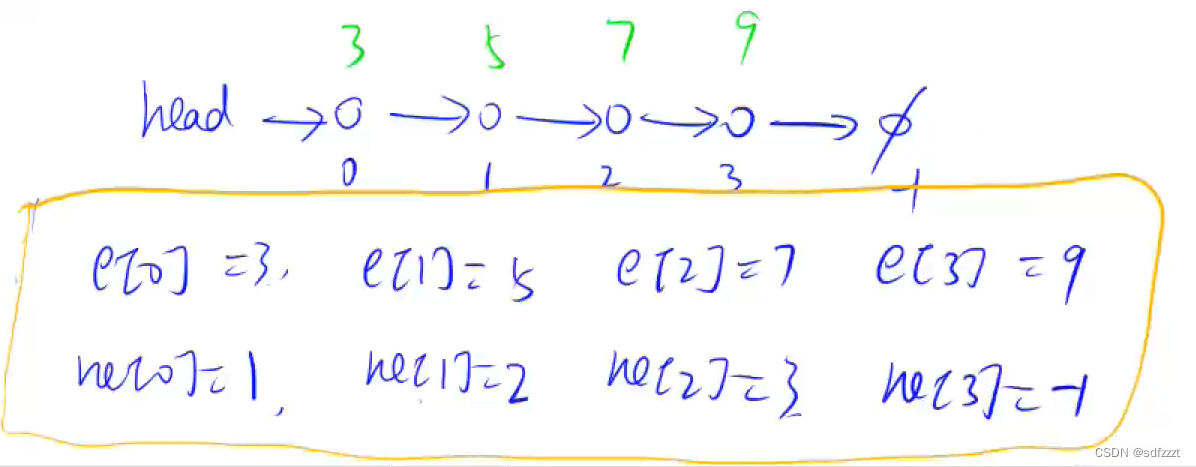 3 5 7 9
head → 0 → 0 → 0 → 0 → ϕ
0 1 2 3 -1
e[0] =3, e[1]=5 e[2]=7 e[3] =9
ne[0]=1, ne[1]=2 ne[2]=3 ne[3]=-1
CSDN @sdfzzzt